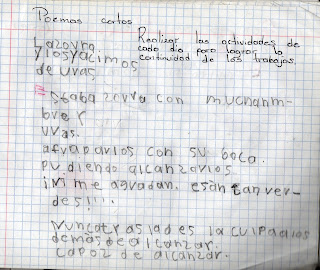 Poemas cortos
Realizar las actividades de
cada dia para lograr la
continuidad de los trabajos.
Lazovra
ylosyacimos
de uvas.
Estaba zovra con muchanm-
brer
uvas.
afraparlos con su boca.
pudiendo alcanzarlos
ini me agradan. esantanver-
des!!!
Nuncatraslades la culpa a los
demás de alcanzar.
capaz de alcanzar.